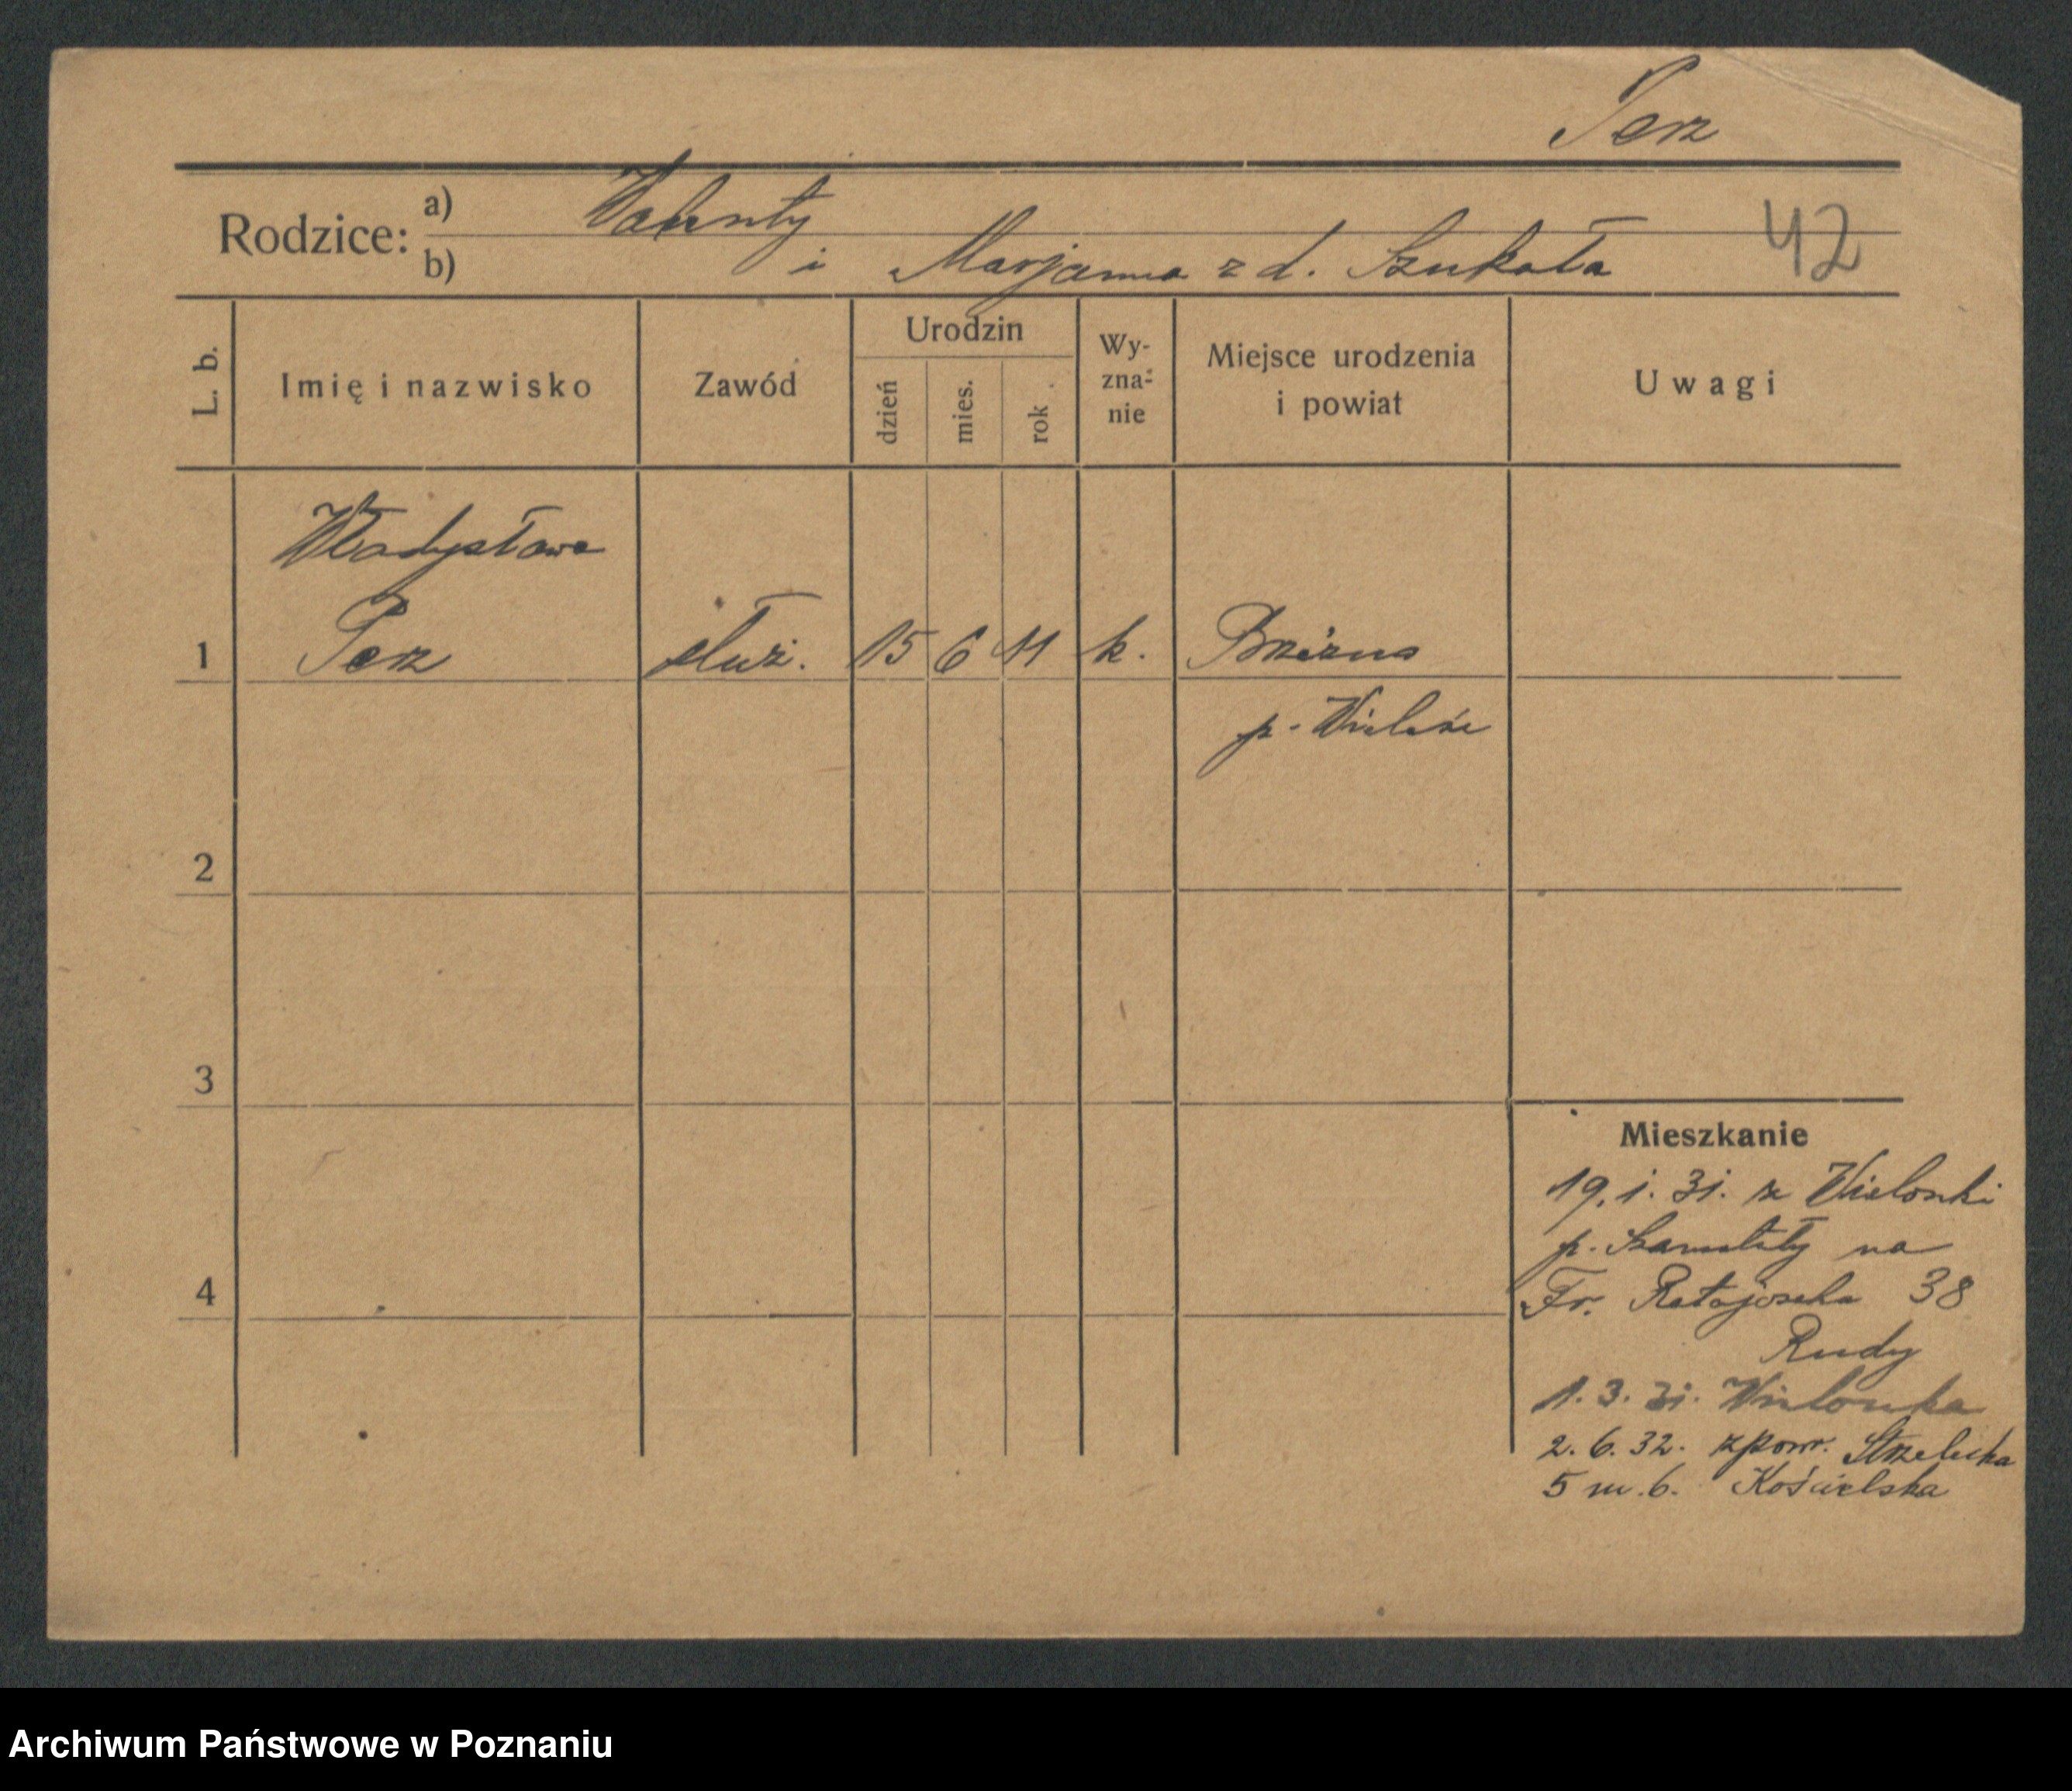 Perz
Rodzice: a) Walenty
b) i Marjanna z d. Szukała
42
L. b.
Imię i nazwisko
Zawód
Urodzin
dzień
mies.
rok
Wy-
zna-
nie
Miejsce urodzenia
i powiat
Uwagi
Władysława
1 Perz służ. 15 6 11 k. Brzezno
p. Wieleń
2
3
4
Mieszkanie
19. 1. 31. z Wielonki
p. Szamotuły na
Fr. Ratajczaka 38
Rudy
1. 3. 31. Wielonka
2. 6. 32. zpowr. Strzelecka
5 m. 6. Kościelska
Archiwum Państwowe w Poznaniu